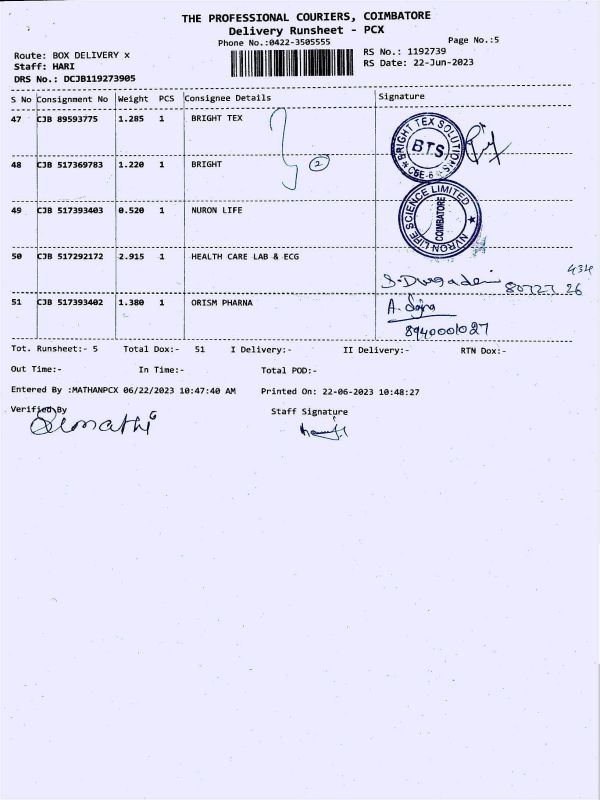 THE PROFESSIONAL COURIERS, COIMBATORE
Delivery Runsheet - PCX
Phone No.:0422-3505555
Page No.:5
Route: BOX DELIVERY x
RS No.: 1192739
Staff: HARI
RS Date: 22-Jun-2023
DRS No.: DCJB119273905
S No Consignment No Weight PCS Consignee Details Signature
47 CJB 89593775 1.285 1 BRIGHT TEX
BRIGHT TEX SOLUTIONS
BTS
CBE-6
48 CJB 517369783 1.220 1 BRIGHT 2
49 CJB 517393403 0.520 1 NURON LIFE
NVRON LIFE SCIENCE LIMITED
COIMBATORE
50 CJB 517292172 2.915 1 HEALTH CARE LAB & ECG
434
80727 26
51 CJB 517393402 1.380 1 ORISM PHARNA
8940001027
Tot. Runsheet:- 5 Total Dox:- 51 I Delivery:- II Delivery:- RTN Dox:-
Out Time:- In Time:- Total POD:-
Entered By :MATHANPCX 06/22/2023 10:47:40 AM Printed On: 22-06-2023 10:48:27
Verified By Staff Signature